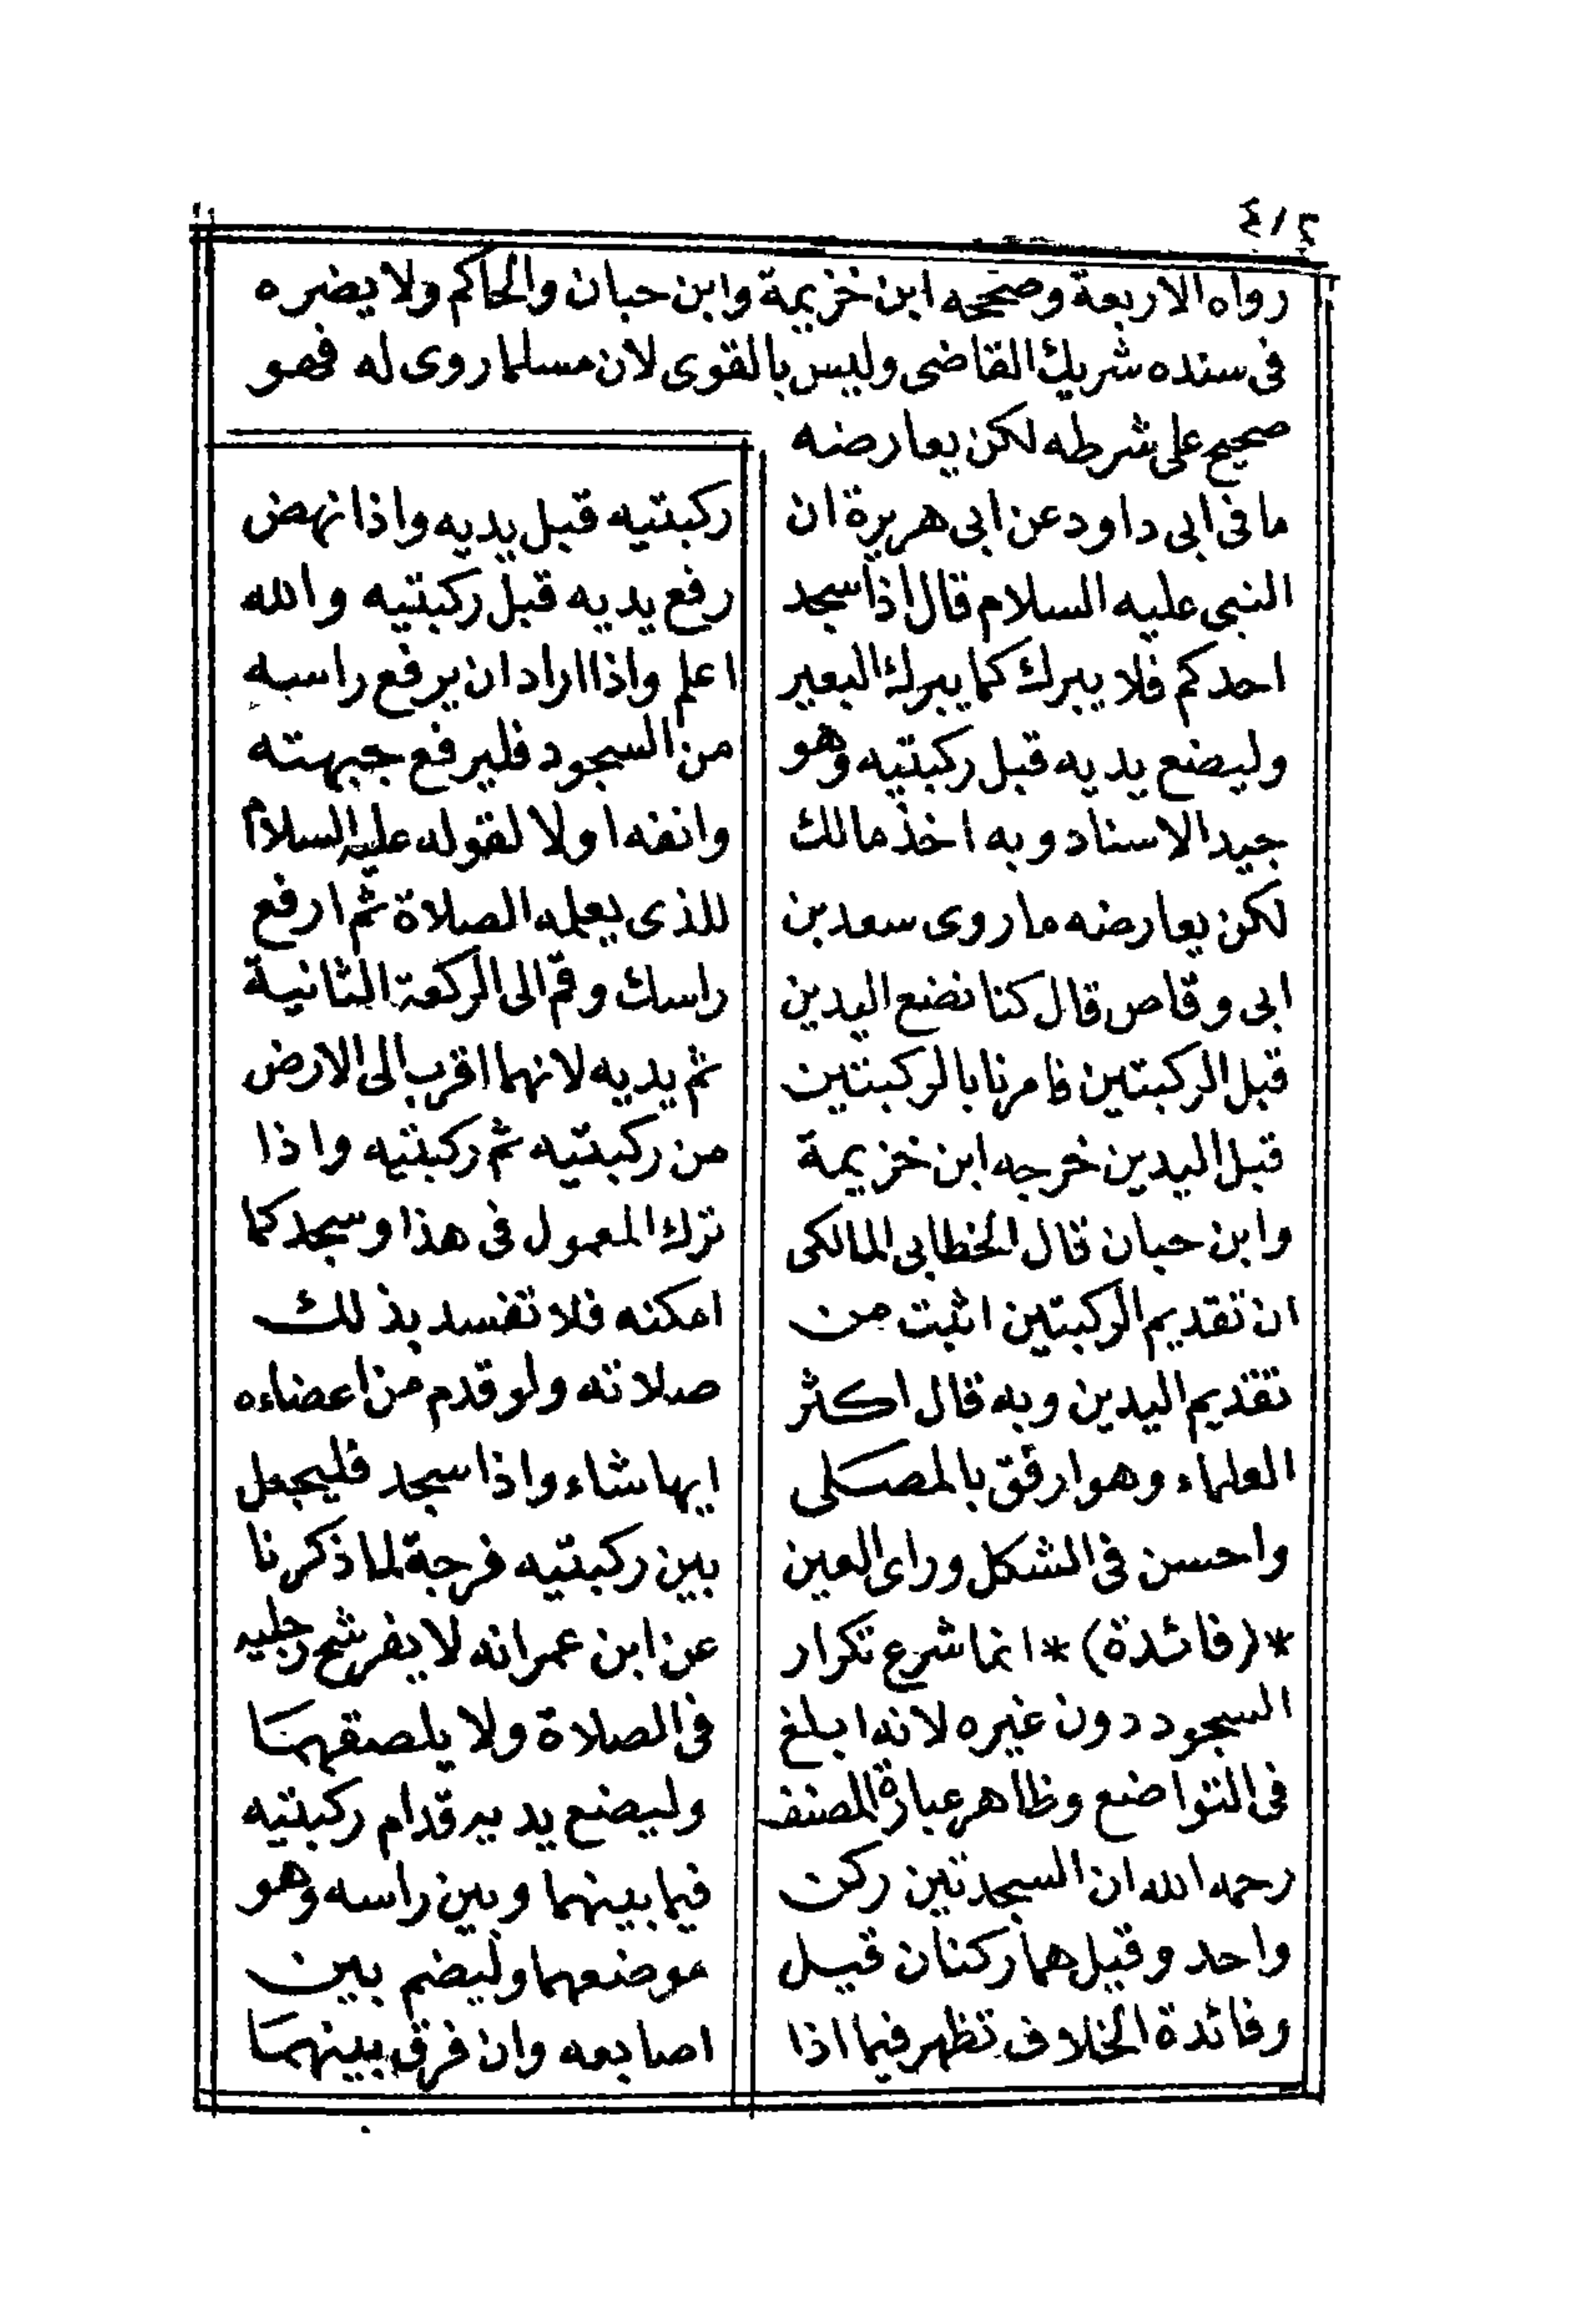 ٤١٢
رواه الاربعة وصححه ابن خزيمة وابن حبان والحاكم ولا يضره
فى سنده شريك القاضى وليس بالقوى لان مسلما روى له فهو
صحيح على شرطه لكن يعارضه
ما فى ابى داود عن ابى هريرة ان
النبى عليه السلام قال اذا سجد
احدكم فلا يبرك كما يبرك البعير
وليضع يديه قبل ركبتيه وهو
جيد الاسناد وبه اخذ مالك
لكن يعارضه ما روى سعد بن
ابى وقاص قال كنا نضع اليدين
قبل الركبتين فامرنا بالركبتين
قبل اليدين خرجه ابن خزيمة
وابن حبان قال الخطابى المالكى
ان تقديم الركبتين اثبت من
تقديم اليدين وبه قال اكثر
العلماء وهو ارفق بالمصلى
واحسن فى الشكل وراى العين
*(فائدة)* انما شرع تكرار
السجود دون غيره لانه ابلغ
فى التواضع وظاهر عبارة المصنف
رحمه الله ان السجدتين ركن
واحد وقيل هما ركنان قيل
وفائدة الخلاف تظهر فيما اذا
ركبتيه قبل يديه واذا نهض
رفع يديه قبل ركبتيه والله
اعلم واذا اراد ان يرفع راسه
من السجود فليرفع جبهته
وانفه اولا لقوله عليه السلام
للذى يعلمه الصلاة ثم ارفع
راسك وقم الى الركعة الثانية
ثم يديه لانهما اقرب الى الارض
من ركبتيه ثم ركبتيه واذا
ترك المعمول فى هذا وسجد كما
امكنه فلا تفسد بذلك
صلاته ولو قدم من اعضاءه
ايها شاء واذا سجد فليجعل
بين ركبتيه فرجة لما ذكرنا
عن ابن عمر انه لا يفرشح رجليه
فى الصلاة ولا يلصقهما
وليضع يديه قدام ركبتيه
فيما بينهما وبين راسه وهو
موضعهما وليضم بين
اصابعه وان فرق بينهما